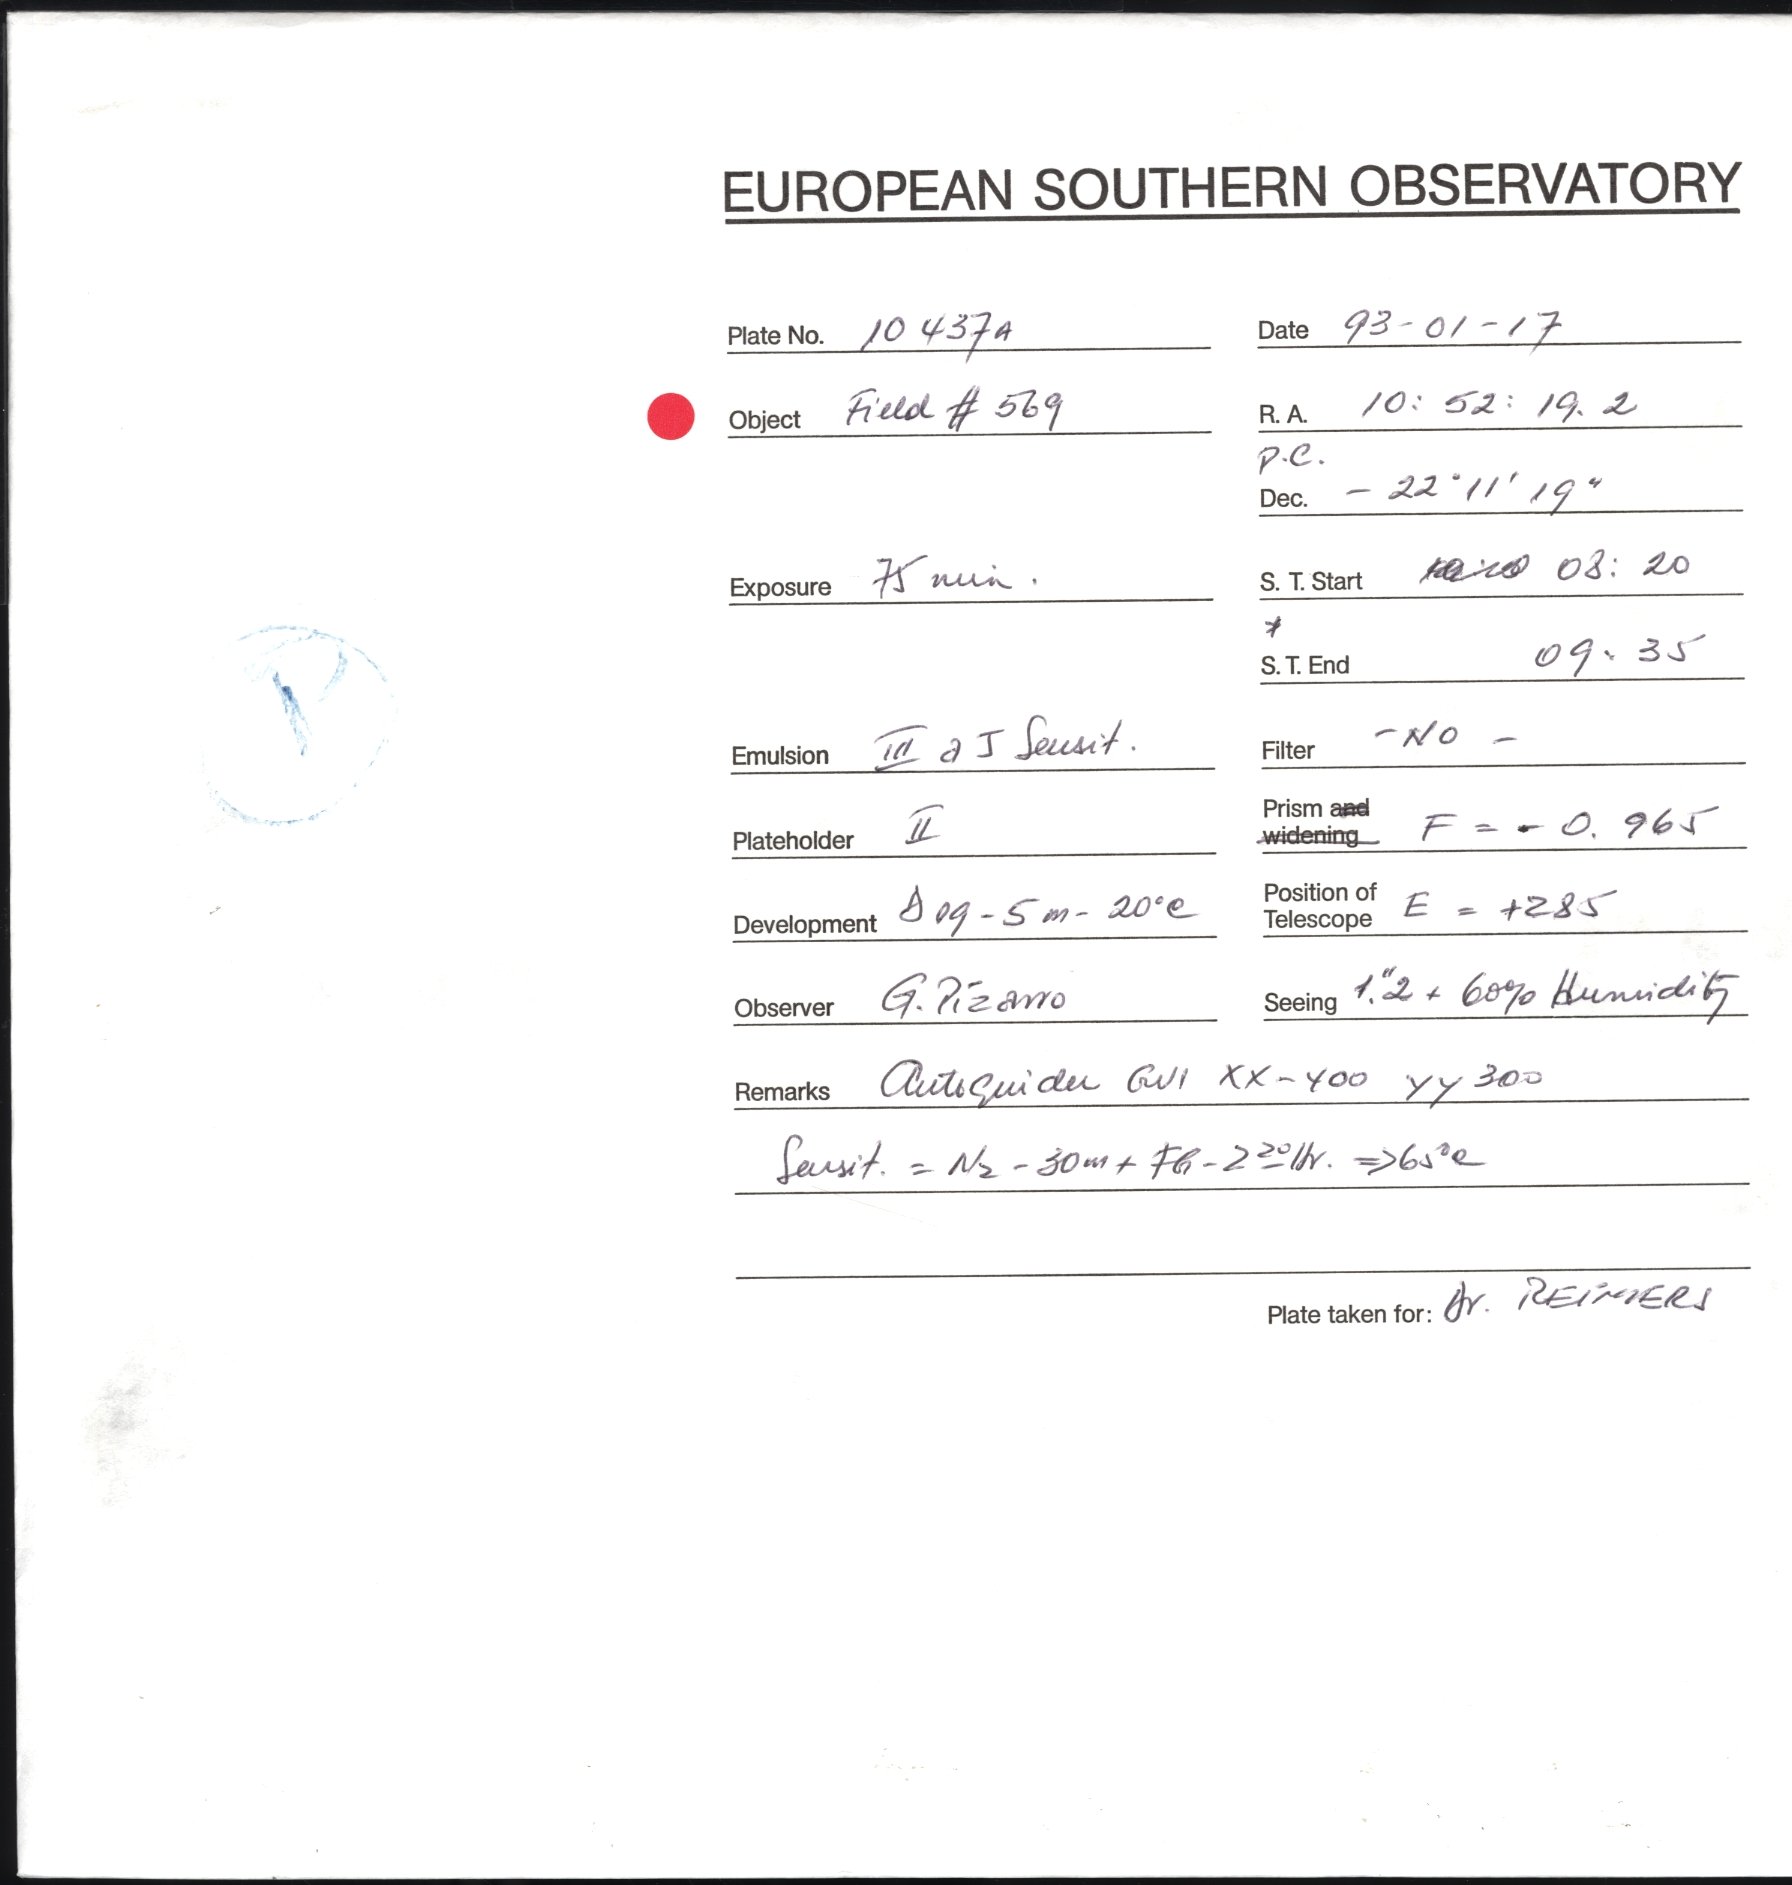 EUROPEAN SOUTHERN OBSERVATORY
Plate No. 10 437A Date 93-01-17
Object Field # 569 R. A. 10: 52: 19. 2
P.C.
Dec. - 22° 11' 19"
Exposure 75 min. S. T. Start 08: 20
*
S. T. End 09: 35
Emulsion III a J Sensit. Filter - NO -
Plateholder II Prism and widening F = - 0. 965
Development D 19 - 5 m - 20°C Position of Telescope E = +285
Observer G. Pizarro Seeing 1."2 + 60% Humidity
Remarks Autoguider XX-400 YY 300
Sensit. = N2 - 30m + FG - 2 20 Hr. => 65°C
Plate taken for: Dr. REIMERS